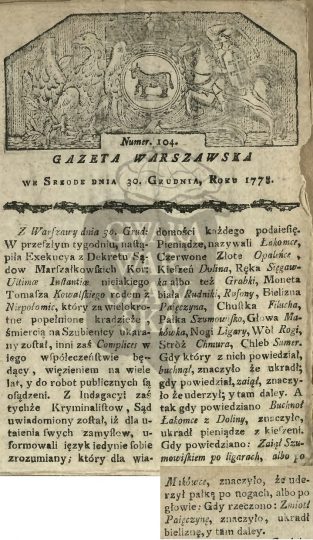 Numer. 104.
GAZETA WARSZAWSKA
WE SRZODE DNIA 30. GRUDNIA, ROKU 1778.
Z Warszawy dnia 30. Grud:
W przeszłym tygodniu, nastą-
piła Exekucya z Dekretu Są-
dow Marszałkowskich Kor:
Ultimæ Instantiæ nieiakiego
Tomasza Kowalskiego rodem z
Niepołomic, który za wielokro-
tne popełnione kradzieże,
śmiercią na Szubienicy ukara-
ny został, inni zaś Complices w
iego społeczeństwie bę-
dący, więzieniem na wiele
lat, y do robot publicznych są
osądzeni. Z Indagacyi zaś
tychże Kryminalistow, Sąd
uwiadomiony został, iż dla u-
taienia swych zamysłow, u-
formowali ięzyk iedynie sobie
zrozumiany; który dla wia-
domości każdego podaiesię.
Pieniądze, nazywali Łakomce,
Czerwone Złote Opaleńce,
Kieszeń Dolina, Ręka Sięgaw-
ka albo też Grabki, Moneta
biała Rudniki, Rosony, Bielizna
Paięczyna, Chustka Filucha,
Pałka Szumowiłko, Głowa Ma-
kówka, Nogi Ligary, Woł Rogi,
Stróż Chmura, Chleb Sumer.
Gdy który z nich powiedział,
buchnął, znaczyło że ukradł;
gdy powiedział, zaiął, znaczy-
ło że uderzył; y tam daley. A
tak gdy powiedziano Buchnoł
Łakomce z Doliny, znaczyło,
ukradł pieniądze z kieszeni.
Gdy powiedziano: Zaiął Szu-
mowiłkiem po ligarach, albo po
Makówce, znaczyło, że ude-
rzył pałką po nogach, albo po
głowie: Gdy rzeczono: Zmiotł
Paięczynę, znaczyło, ukradł
bieliznę, y tam daley.